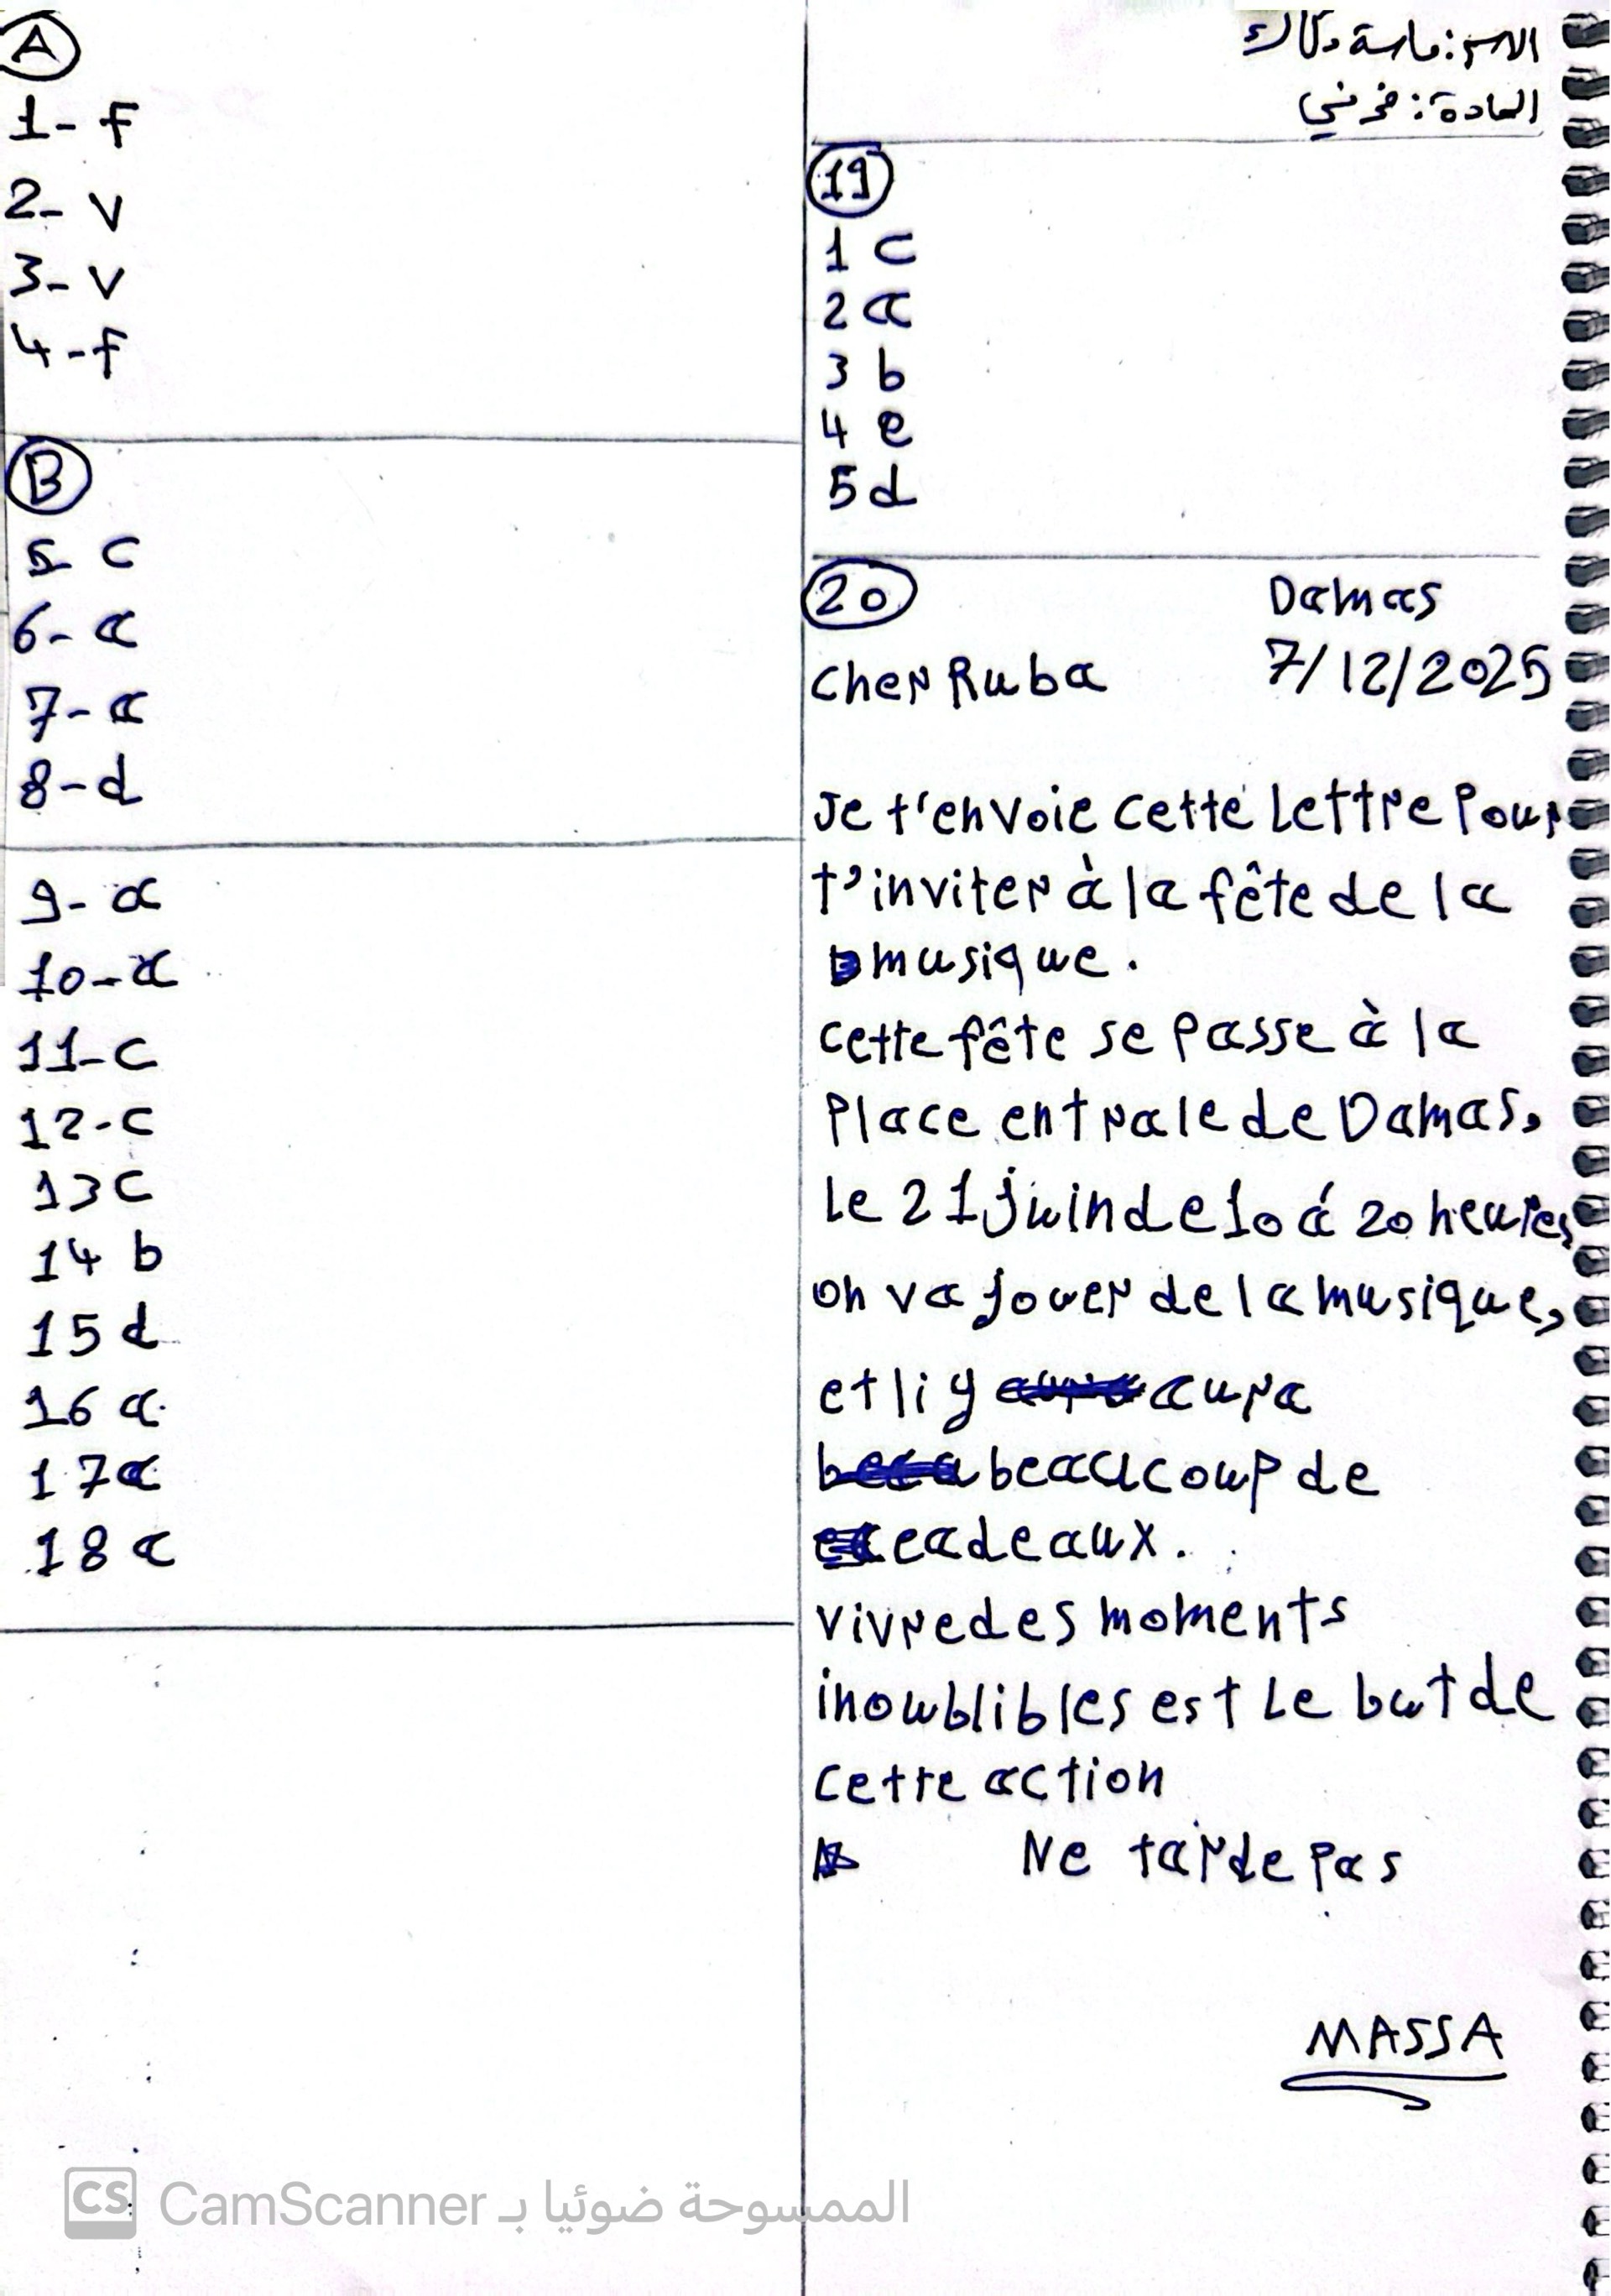 A
1- f
2- v
3- v
4- f
B
5- c
6- a
7- a
8- d
9- a
10- a
11- c
12- c
13 c
14 b
15 d
16 a
17 a
18 a
الاسم: ماسة
المادة: فرنسي
19
1 c
2 a
3 b
4 e
5 d
20
Damas
7/12/2025
cher Ruba
Je t'envoie cette Lettre Pour
t'inviter à la fête de la
musique.
cette fête se Passe à la
Place entrale de Damas,
Le 21 juin de 10 á 20 heures,
on va jouer de la musique,
et li y aura
beaucoup de
eadeaux.
vivre des moments
inoublibles est Le but de
cette action
Ne tarde Pas
MASSA
CS CamScanner الممسوحة ضوئيا بـ